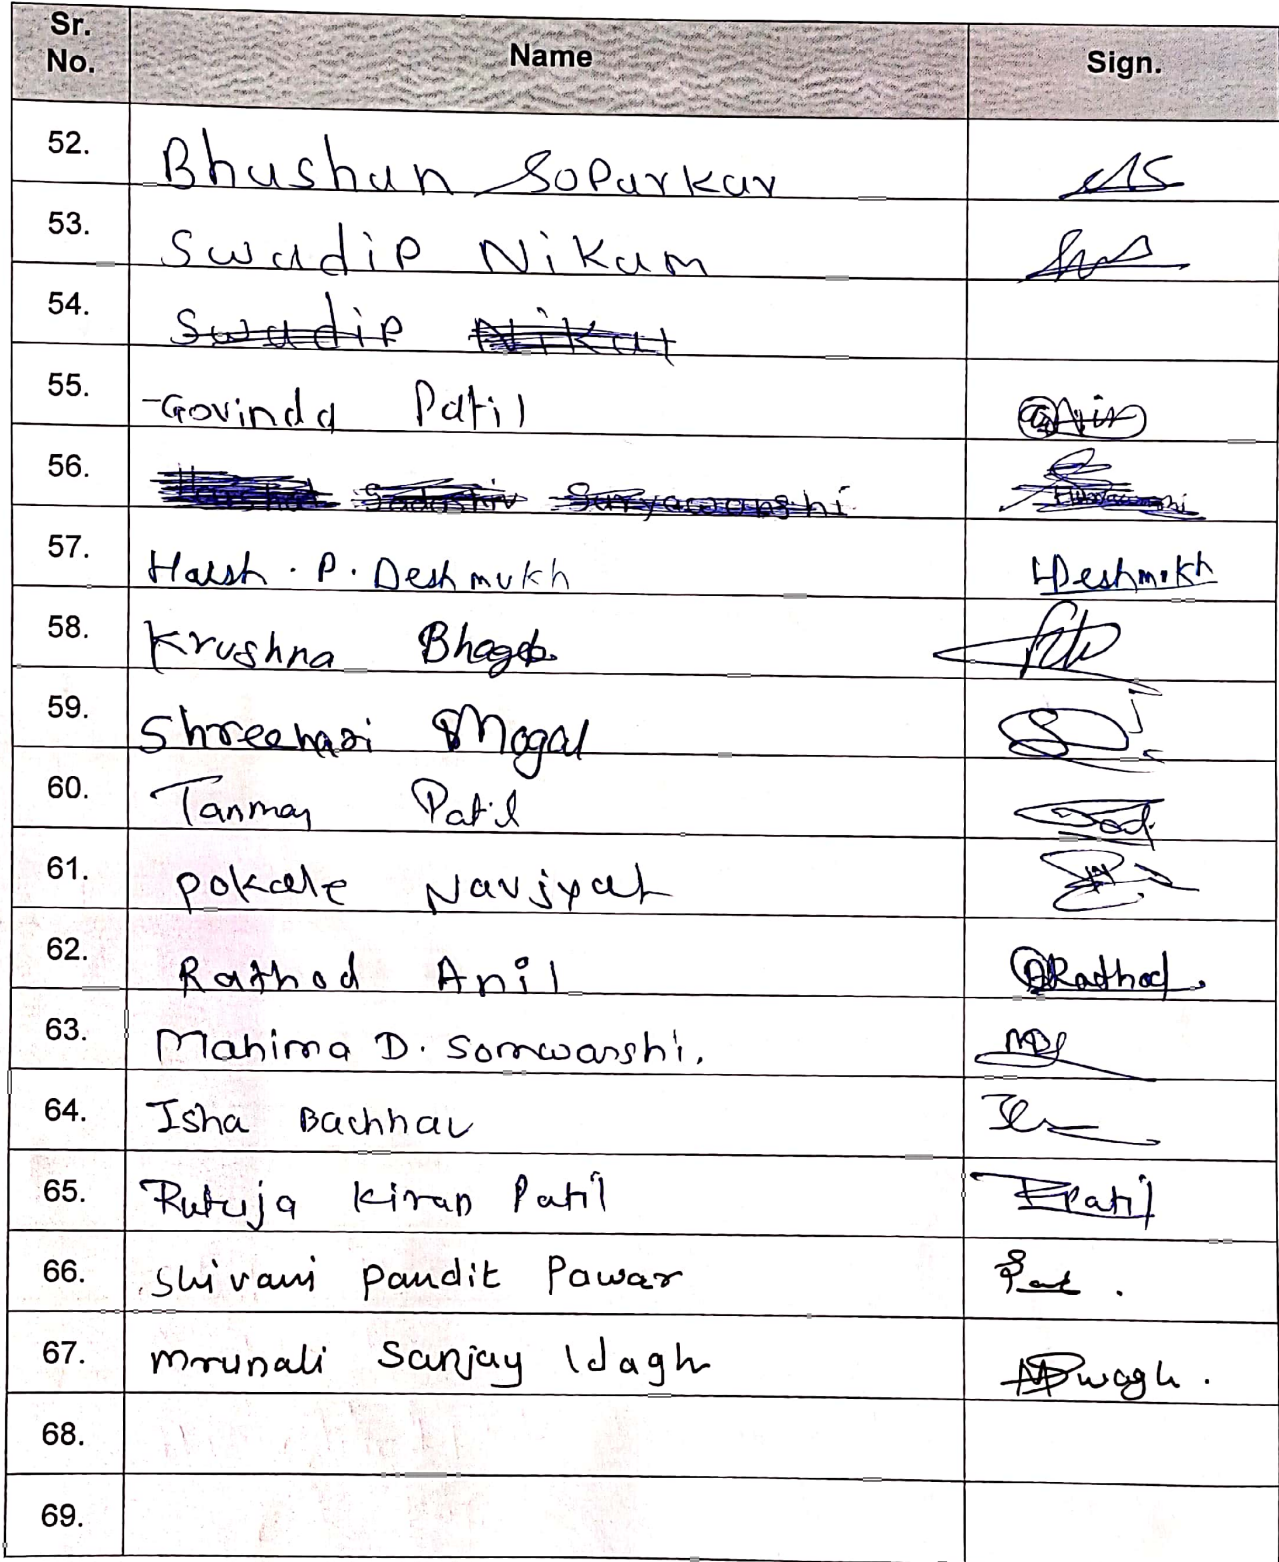 Sr. No. Name Sign.
52. Bhushan Soparkar
53. Swadip Nikam
54. Swadip
55. Govinda Patil
56. Sadashiv Suryawanshi
57. Harsh . P. Deshmukh HDeshmukh
58. Krushna
59. Shreehari Mogal
60. Tanmay Patil
61. Pokale Navjyat
62. Rathod Anil ARathod.
63. Mahima D. Somwanshi.
64. Isha Bachhav
65. Rutuja Kiran Patil RPatil
66. Shivani Pandit Pawar
67. Mrunali Sanjay Wagh wagh.
68.
69.